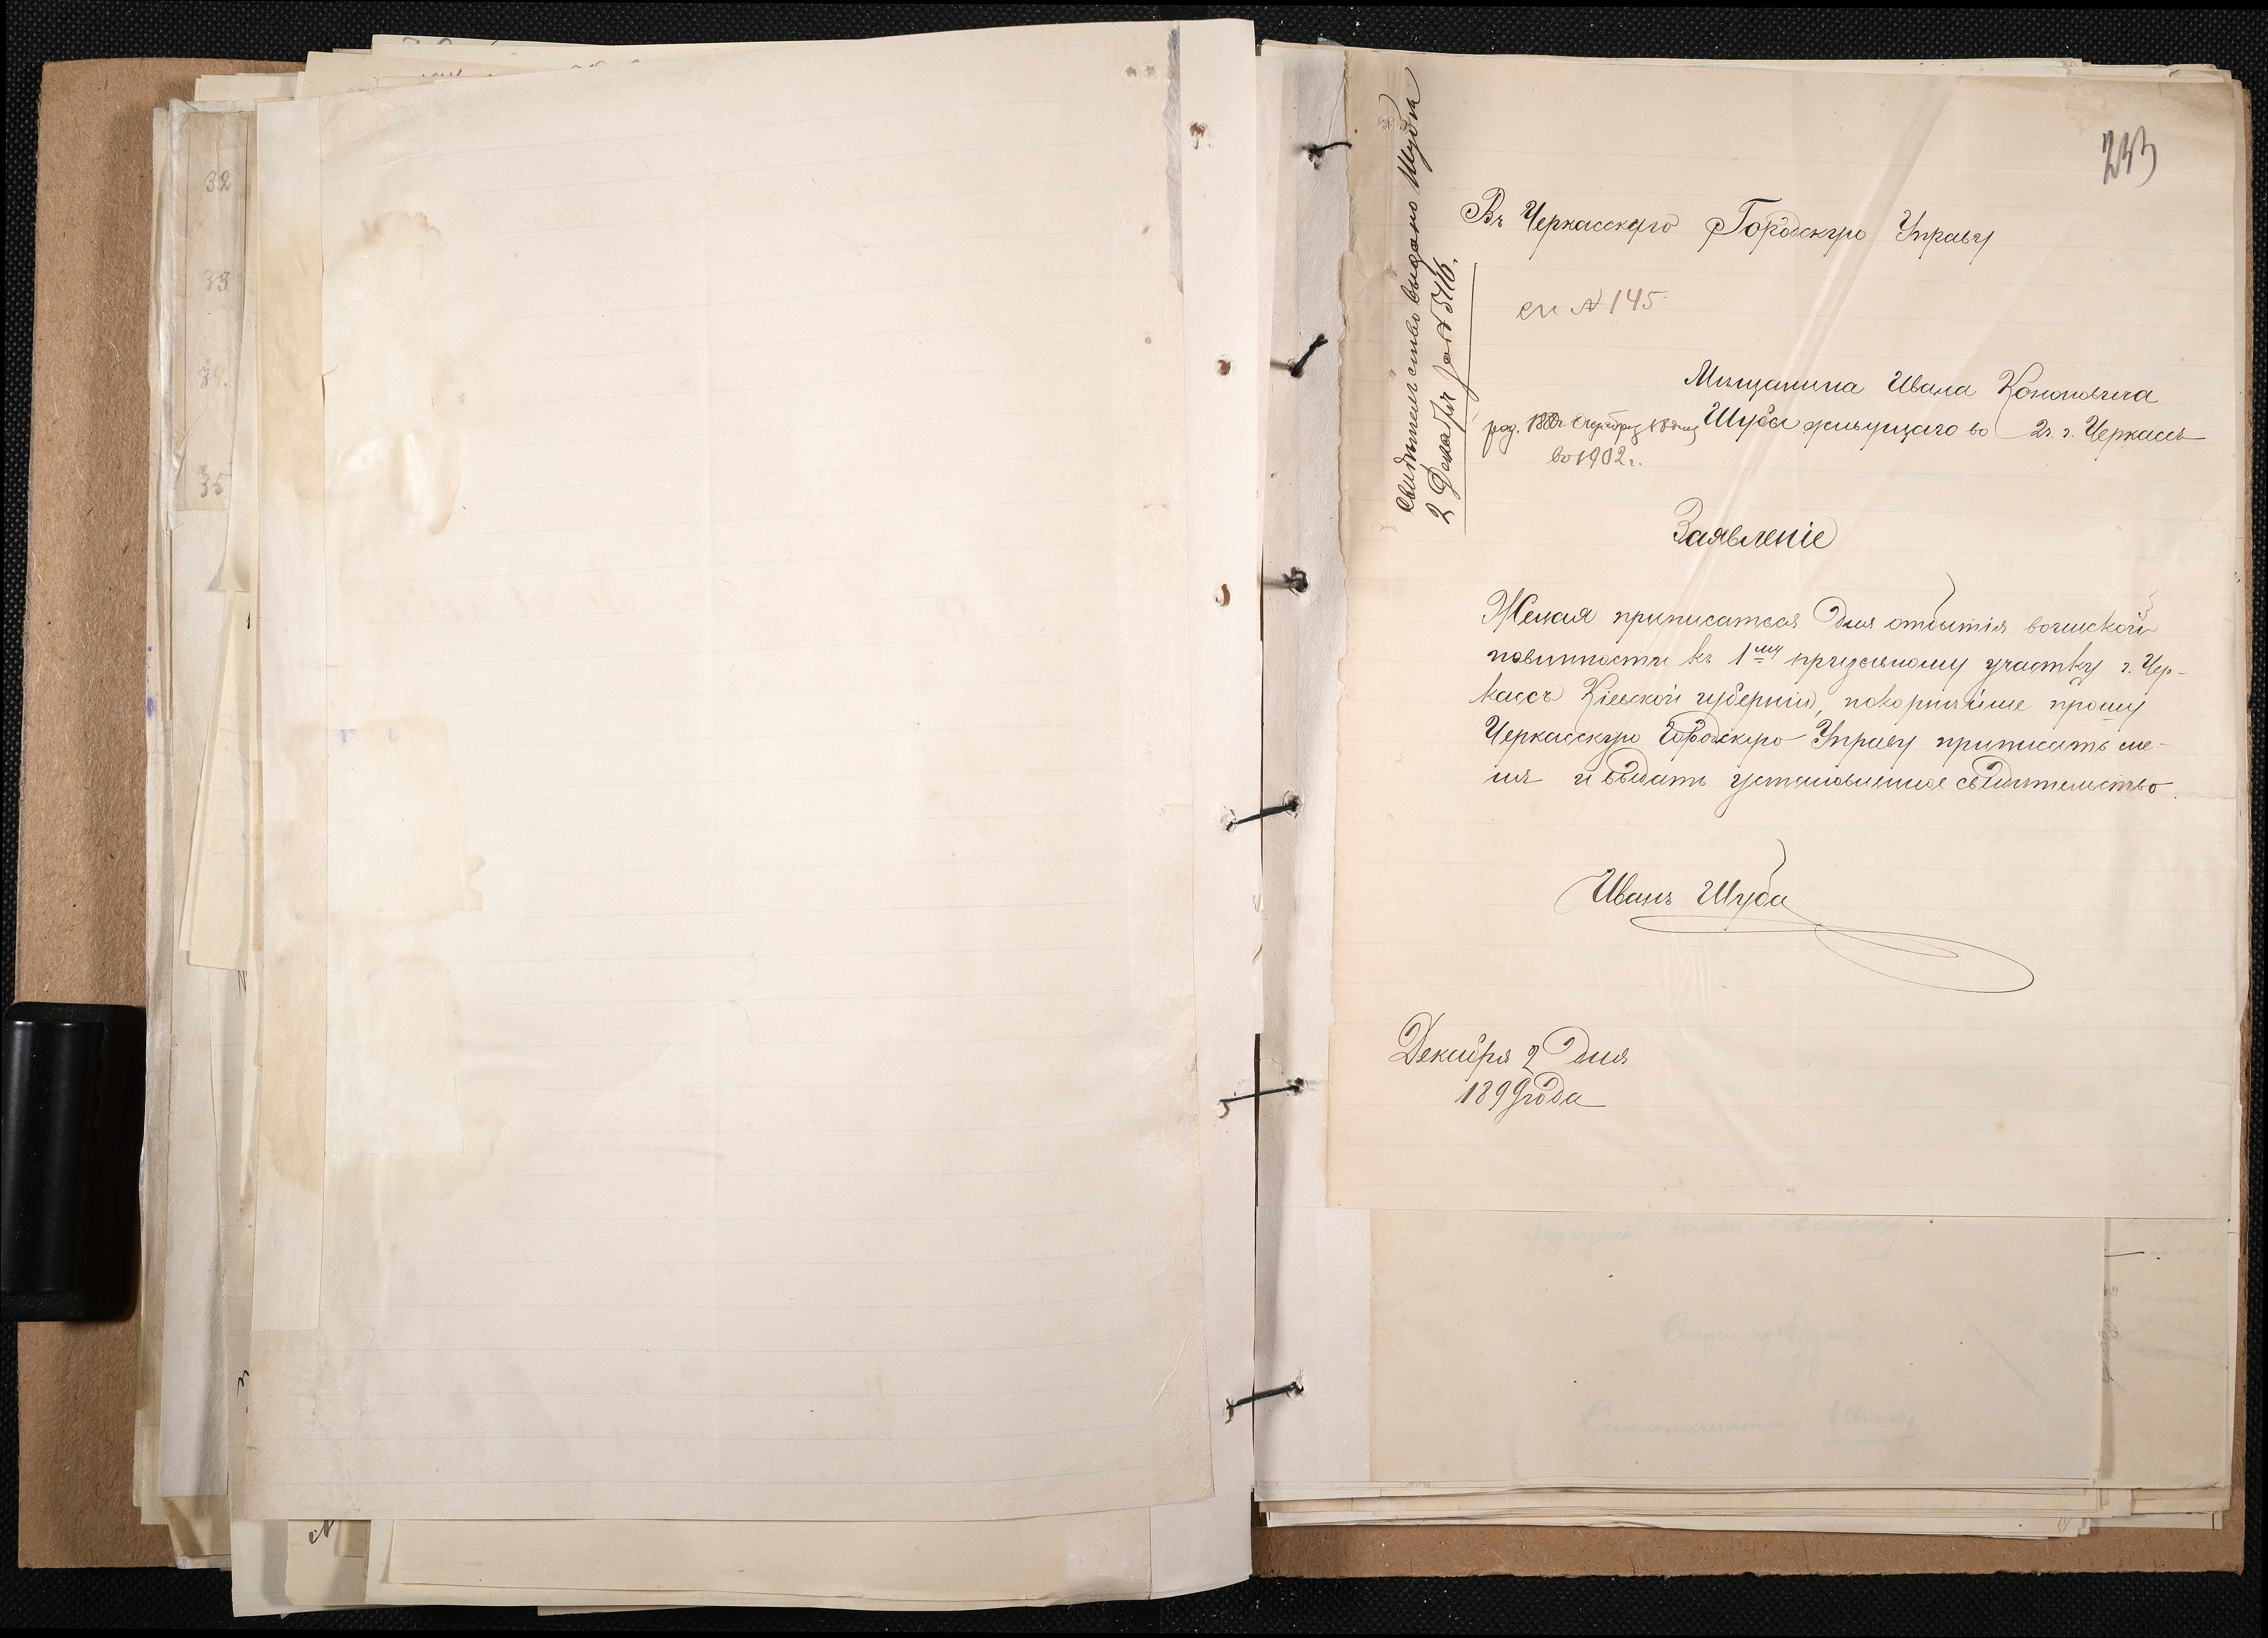 233
Въ Черкасскую Городскую Управу
сп № 145
Мѣщанина Ивана Кононовича
Шубы живущаго во 2ч. г. Черкассъ
род. 18 дня
во 1902 г.
Свидѣтельство выдано Шубѣ
2 Декабря за № 5416.
Заявленіе
Желая приписаться для отбытія воинской
повинности къ 1му призывному участку г. Чер-
кассъ Кіевской губерніи, покорнѣйше прошу
Черкасскую Городскую Управу приписать ме-
ня и выдать установленное свидѣтельство.
Иванъ Шуба
Декабря 2 дня
1899 года
32
33
34.
35